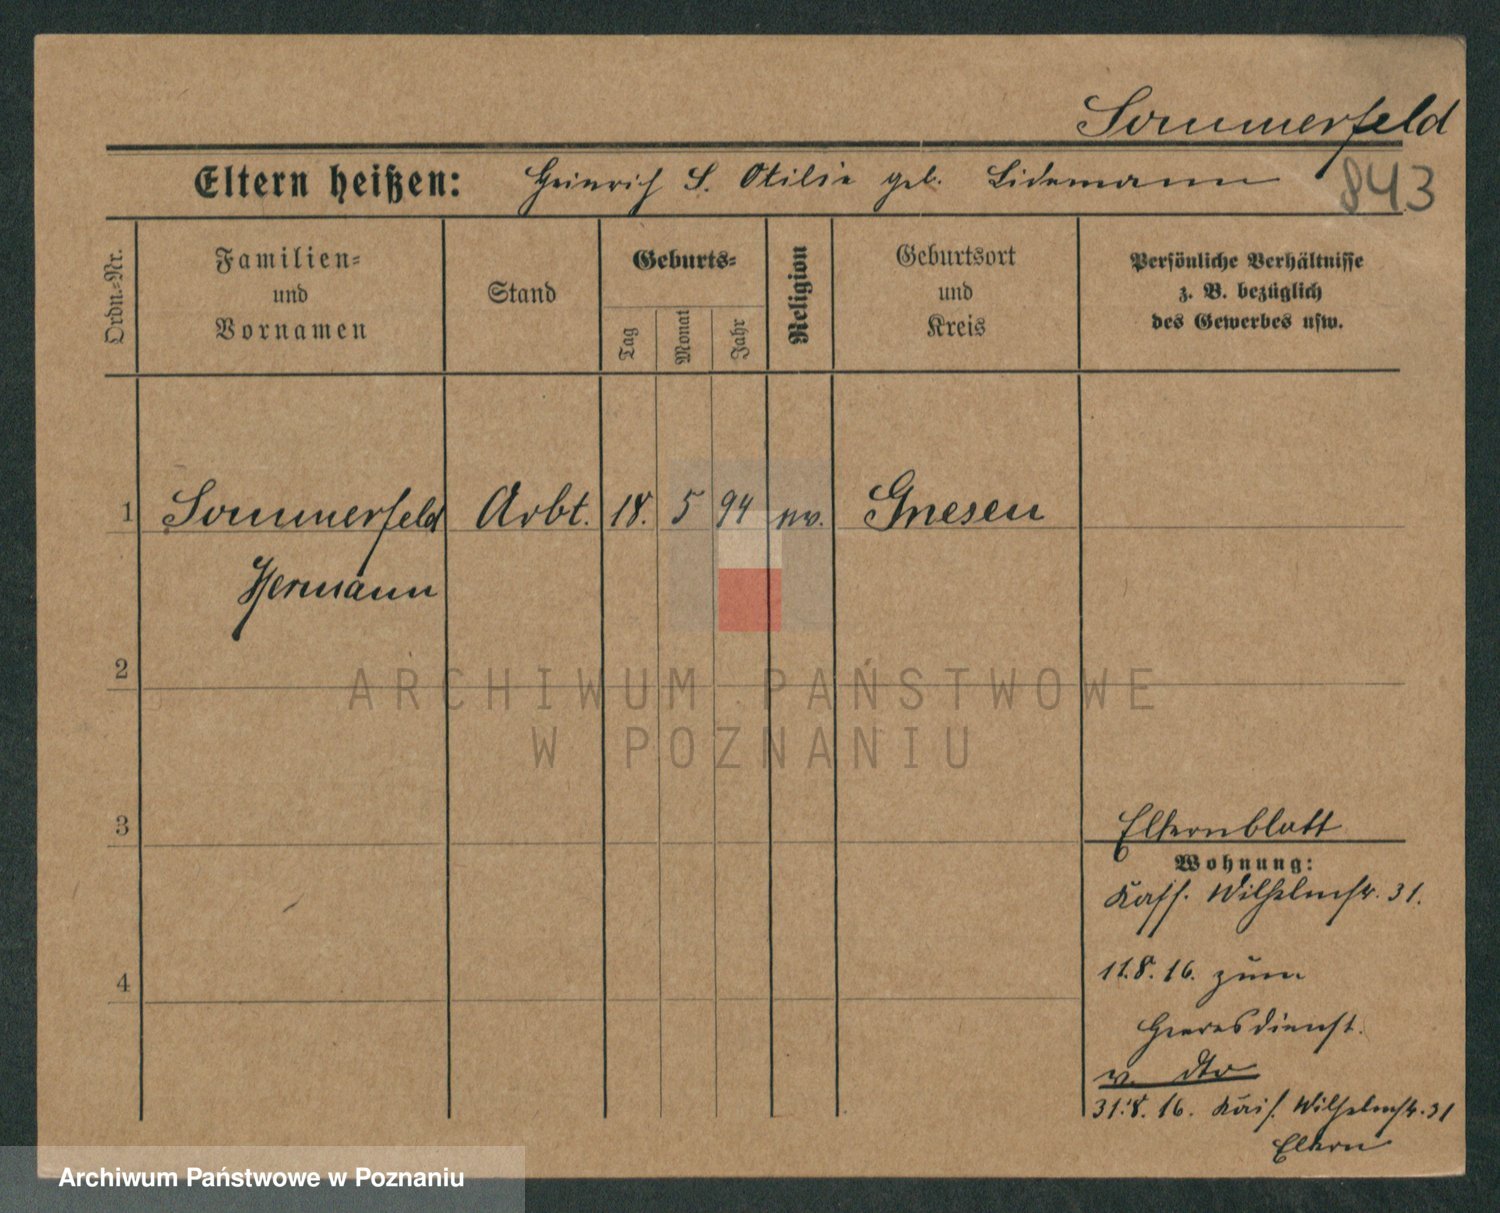 Sommerfeld
Eltern heißen: Heinrich S. Otilie geb. Lidemann
843
Ordn.-Nr.
Familien-
und
Vornamen
Stand
Geburts-
Tag
Monat
Jahr
Religion
Geburtsort
und
Kreis
Persönliche Verhältnisse
z. B. bezüglich
des Gewerbes usw.
1 Sommerfeld Arbt. 18. 5 94 ev. Gnesen
Hermann
2
3
4
Elternblatt
Wohnung:
Kais. Wilhelmstr. 31.
11.8.16. zum
Heeresdienst.
v. dto
31.8.16. Kais. Wilhelmstr. 31
Eltern
ARCHIWUM PAŃSTWOWE
W POZNANIU
Archiwum Państwowe w Poznaniu